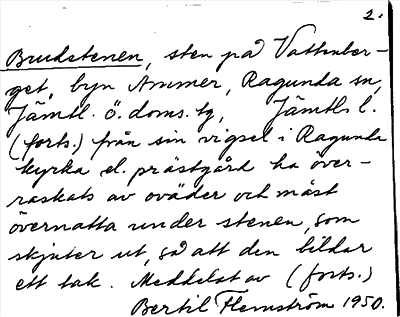 2.
Brudstenen, sten på Vattenber-
get, byn Ammer, Ragunda sn,
Jämtl. ö. doms. tg, Jämtl. l.
(forts.) från sin vigsel i Ragunda
kyrka el. prästgård ha över-
raskats av oväder och måst
övernatta under stenen, som
skjuter ut, så att den bildar
ett tak. Meddelat av (forts.)
Bertil Flemström 1950.